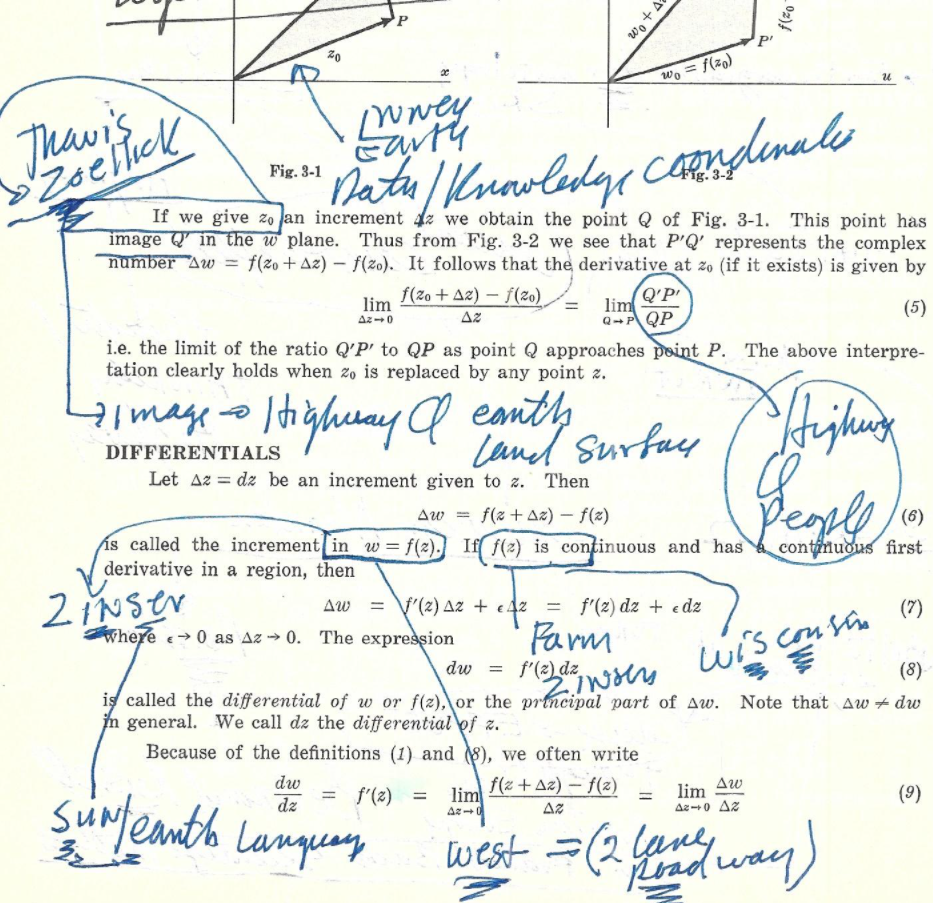 P
z₀
x
w₀ + Δw
f(z₀
P'
w₀ = f(z₀)
u
Inner
Earth
Travis
Zoellick
Fig. 3-1
Fig. 3-2
Data/Knowledge coordinate
If we give z₀ an increment Δz we obtain the point Q of Fig. 3-1. This point has
image Q' in the w plane. Thus from Fig. 3-2 we see that P'Q' represents the complex
number Δw = f(z₀ + Δz) − f(z₀). It follows that the derivative at z₀ (if it exists) is given by
lim Δz→0 f(z₀ + Δz) − f(z₀) / Δz = lim Q→P Q'P' / QP (5)
i.e. the limit of the ratio Q'P' to QP as point Q approaches point P. The above interpre-
tation clearly holds when z₀ is replaced by any point z.
Image → Highway Q earth
land surface
Highway
Q
People
DIFFERENTIALS
Let Δz = dz be an increment given to z. Then
Δw = f(z + Δz) − f(z) (6)
is called the increment in w = f(z). If f(z) is continuous and has a continuous first
derivative in a region, then
2 inser
Δw = f'(z) Δz + ϵ Δz = f'(z) dz + ϵ dz (7)
where ϵ → 0 as Δz → 0. The expression
Farm
2 insers
Wisconsin
dw = f'(z) dz (8)
is called the differential of w or f(z), or the principal part of Δw. Note that Δw ≠ dw
in general. We call dz the differential of z.
Because of the definitions (1) and (8), we often write
dw/dz = f'(z) = lim Δz→0 f(z + Δz) − f(z) / Δz = lim Δz→0 Δw / Δz (9)
Sun/earth Language
West ⇒ (2 lane
Roadway)